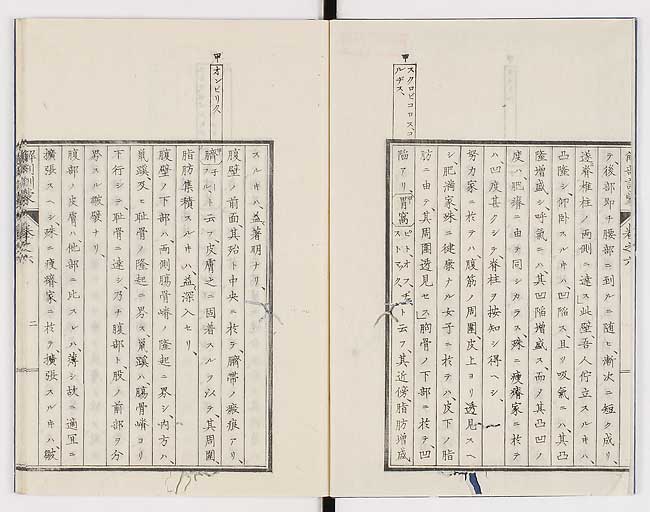 甲 スクロビコロス、コ
ルヂス、
テ、後部即チ腰部ニ到ルニ随ヒ、漸次ニ短ク成リ、
遂ニ脊椎柱ノ両側ニ達ス此壁吾人佇立スルキハ、
凸隆シ、仰臥スルキハ、凹陥ス、且ツ吸氣ニハ、其凸
隆増盛シ呼氣ニハ、其凹陥増盛ス、而ノ其凸凹ノ
度ハ、肥瘠ニ由テ同シカラス、殊ニ痩瘠家ニ於テ
ハ、凹度甚クシテ、脊柱ヲ按知シ得ヘシ、
努力家ニ於テハ、腹筋ノ周圍、皮上ヨリ透見スヘ
シ、肥満家、殊ニ健康ナル女子ニ於テハ、皮下ノ脂
肪ニ由テ其周圍透見セス、胸骨ノ下部ニ於テ、凹
陥アリ、胃窩 ト云フ、其近傍脂肪増盛
甲 オンビリクス
スルキハ、益著明ナリ、
腹壁ノ前面、其殆ト中央ニ於テ、臍帯ノ瘢痕アリ、
臍 ト云フ、皮膚之ニ固着スルヲ以テ、其周圍、
脂肪集積スルキハ、益深入セリ、
腹壁ノ下部ハ、両側腸骨嵴ノ隆起ニ界シ、内方ハ、
鼠蹊及ヒ耻骨ノ隆起ニ界ス、鼠蹊ハ、腸骨嵴ヨリ
下行シテ、耻骨ニ達シ乃チ腹部ト股ノ前部ヲ分
界スル皺襞ナリ、
腹部ノ皮膚ハ他部ニ比スレハ、薄シ故ニ適宜ニ
擴張スヘシ、殊ニ痩瘠家ニ於テ擴張スルキハ、皺
解剖訓蒙 巻之六 二